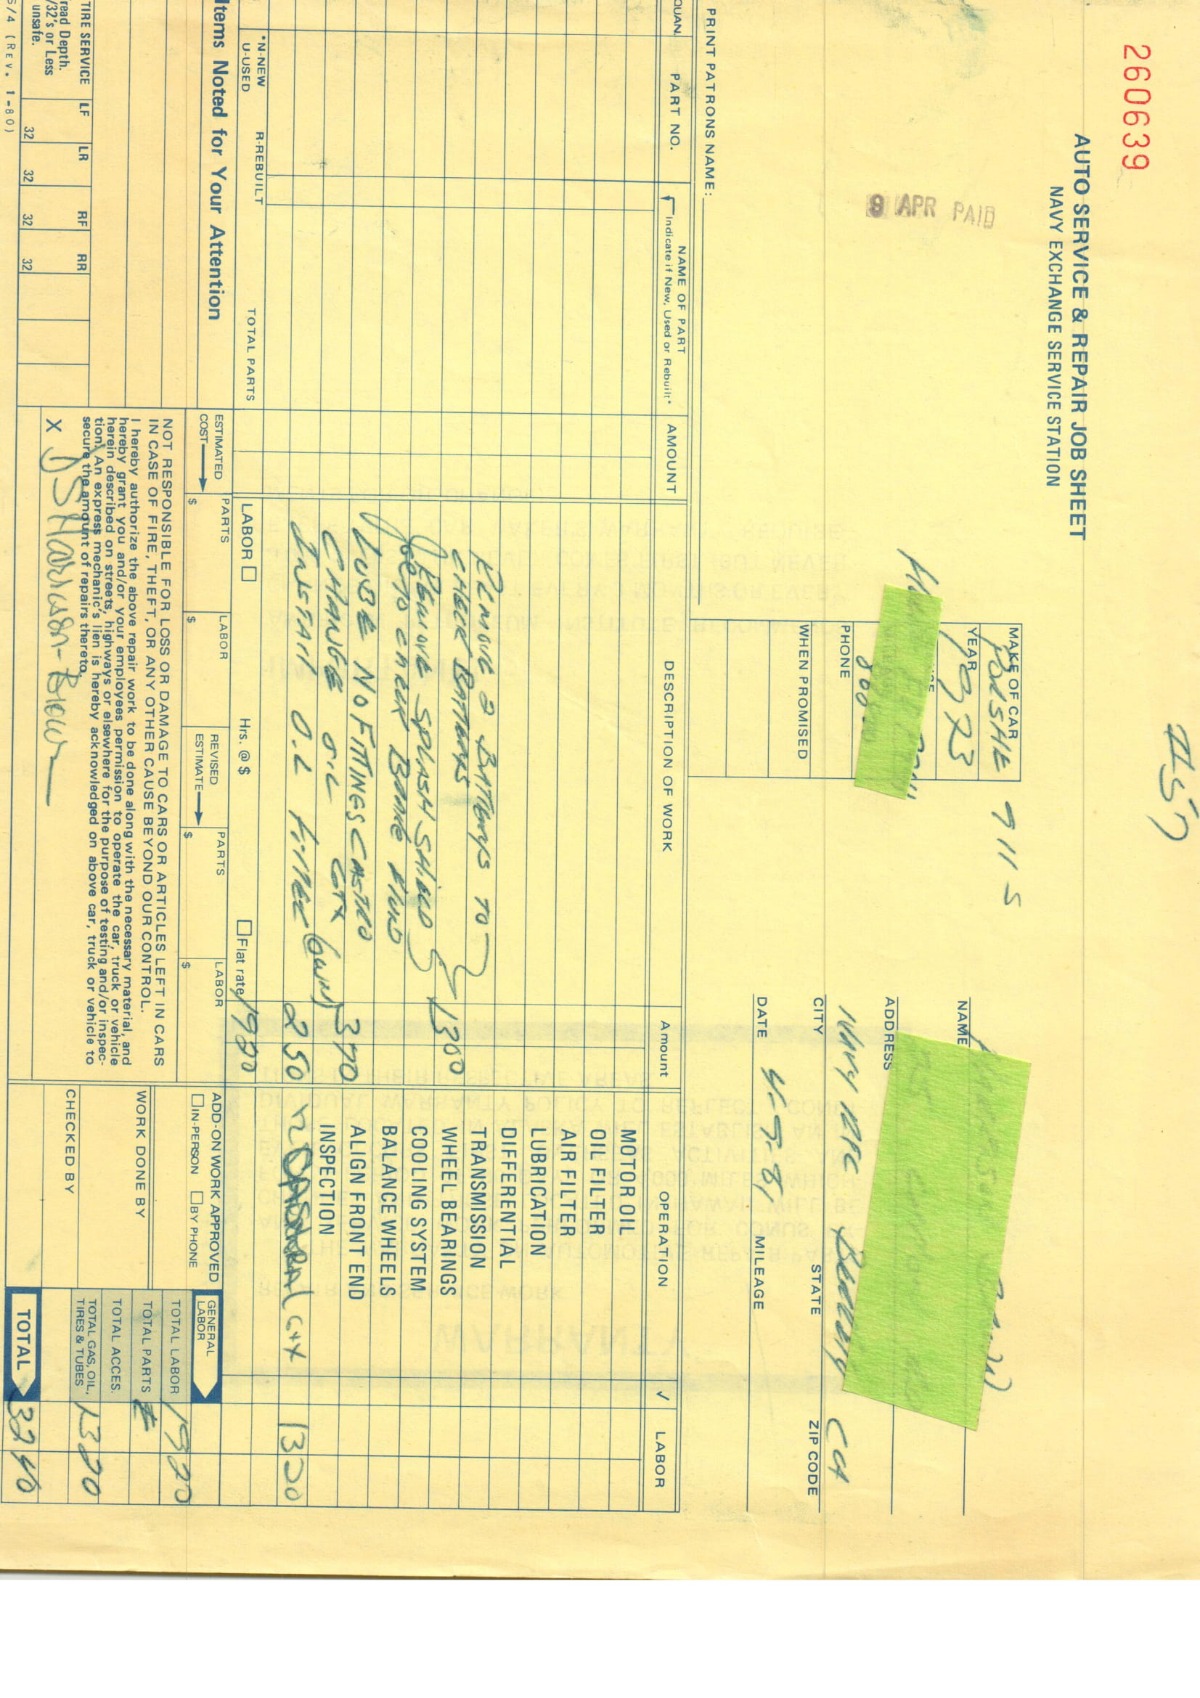 260639
AUTO SERVICE & REPAIR JOB SHEET
NAVY EXCHANGE SERVICE STATION
9 APR PAID
MAKE OF CAR
PORSHE 911 S
YEAR
1973
PHONE
WHEN PROMISED
NAME
ADDRESS
CITY STATE ZIP CODE
CA
DATE 4-9-81 MILEAGE
PRINT PATRONS NAME:
QUAN. PART NO. NAME OF PART AMOUNT DESCRIPTION OF WORK Amount OPERATION √ LABOR
Indicate if New, Used or Rebuilt*
MOTOR OIL
OIL FILTER
AIR FILTER
LUBRICATION
DIFFERENTIAL
Remove 2 Batterys to TRANSMISSION
check Batterys WHEEL BEARINGS
Remove splash shield 1300 COOLING SYSTEM
to check Brake Fluid BALANCE WHEELS
LUBE NO FITTINGS CASTRO ALIGN FRONT END
CHANGE OIL GTX 370 INSPECTION
INSTALL OIL FILTER 250 GTX 1320
*N-NEW R-REBUILT TOTAL PARTS
U-USED
LABOR Hrs. @ $ Flat rate 1920
Items Noted for Your Attention
ESTIMATED COST PARTS $ LABOR $ REVISED ESTIMATE PARTS $ LABOR $
ADD-ON WORK APPROVED
IN-PERSON BY PHONE
GENERAL LABOR
NOT RESPONSIBLE FOR LOSS OR DAMAGE TO CARS OR ARTICLES LEFT IN CARS
IN CASE OF FIRE, THEFT, OR ANY OTHER CAUSE BEYOND OUR CONTROL.
I hereby authorize the above repair work to be done along with the necessary material, and
hereby grant you and/or your employees permission to operate the car, truck or vehicle
herein described on streets, highways or elsewhere for the purpose of testing and/or inspec-
tion. An express mechanic's lien is hereby acknowledged on above car, truck or vehicle to
secure the amount of repairs thereto.
X DS Harrison-Brown
WORK DONE BY
CHECKED BY
TOTAL LABOR 1920
TOTAL PARTS
TOTAL ACCES.
TOTAL GAS, OIL, TIRES & TUBES 1320
TOTAL 3240
TIRE SERVICE LF LR RF RR
read Depth.
/32's or Less
unsafe.
32 32 32 32
5/4 (REV. 1-80)